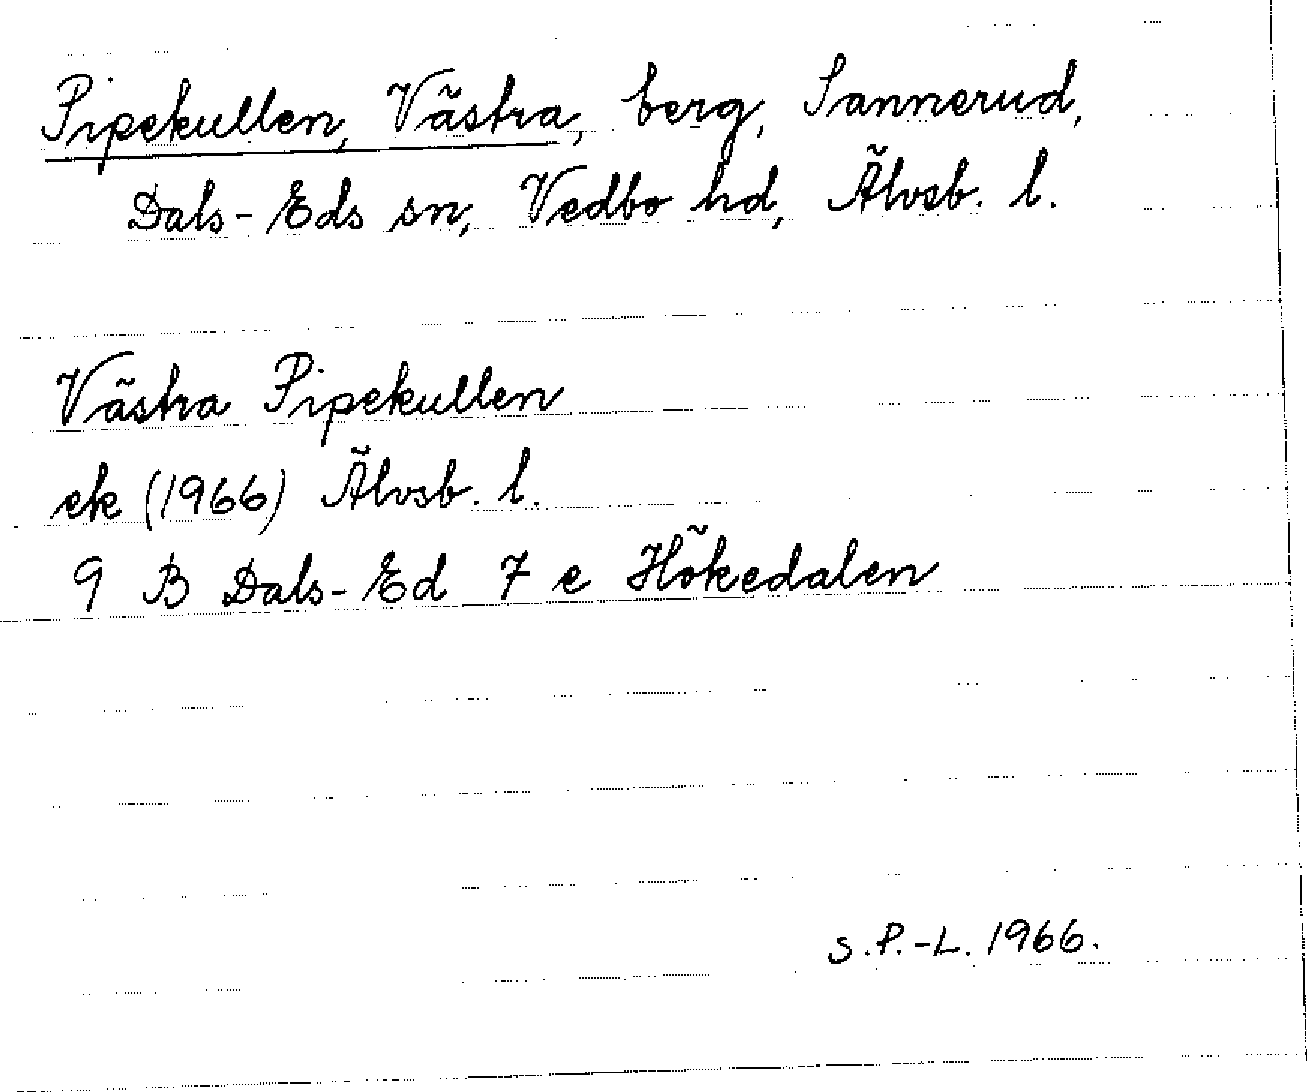 Pipekullen, Västra, berg, Sannerud,
Dals-Eds sn, Vedbo hd, Älvsb. l.
Västra Pipekullen
ek (1966) Älvsb. l.
9 B Dals-Ed 7 e Hökedalen
S.P.-L. 1966.